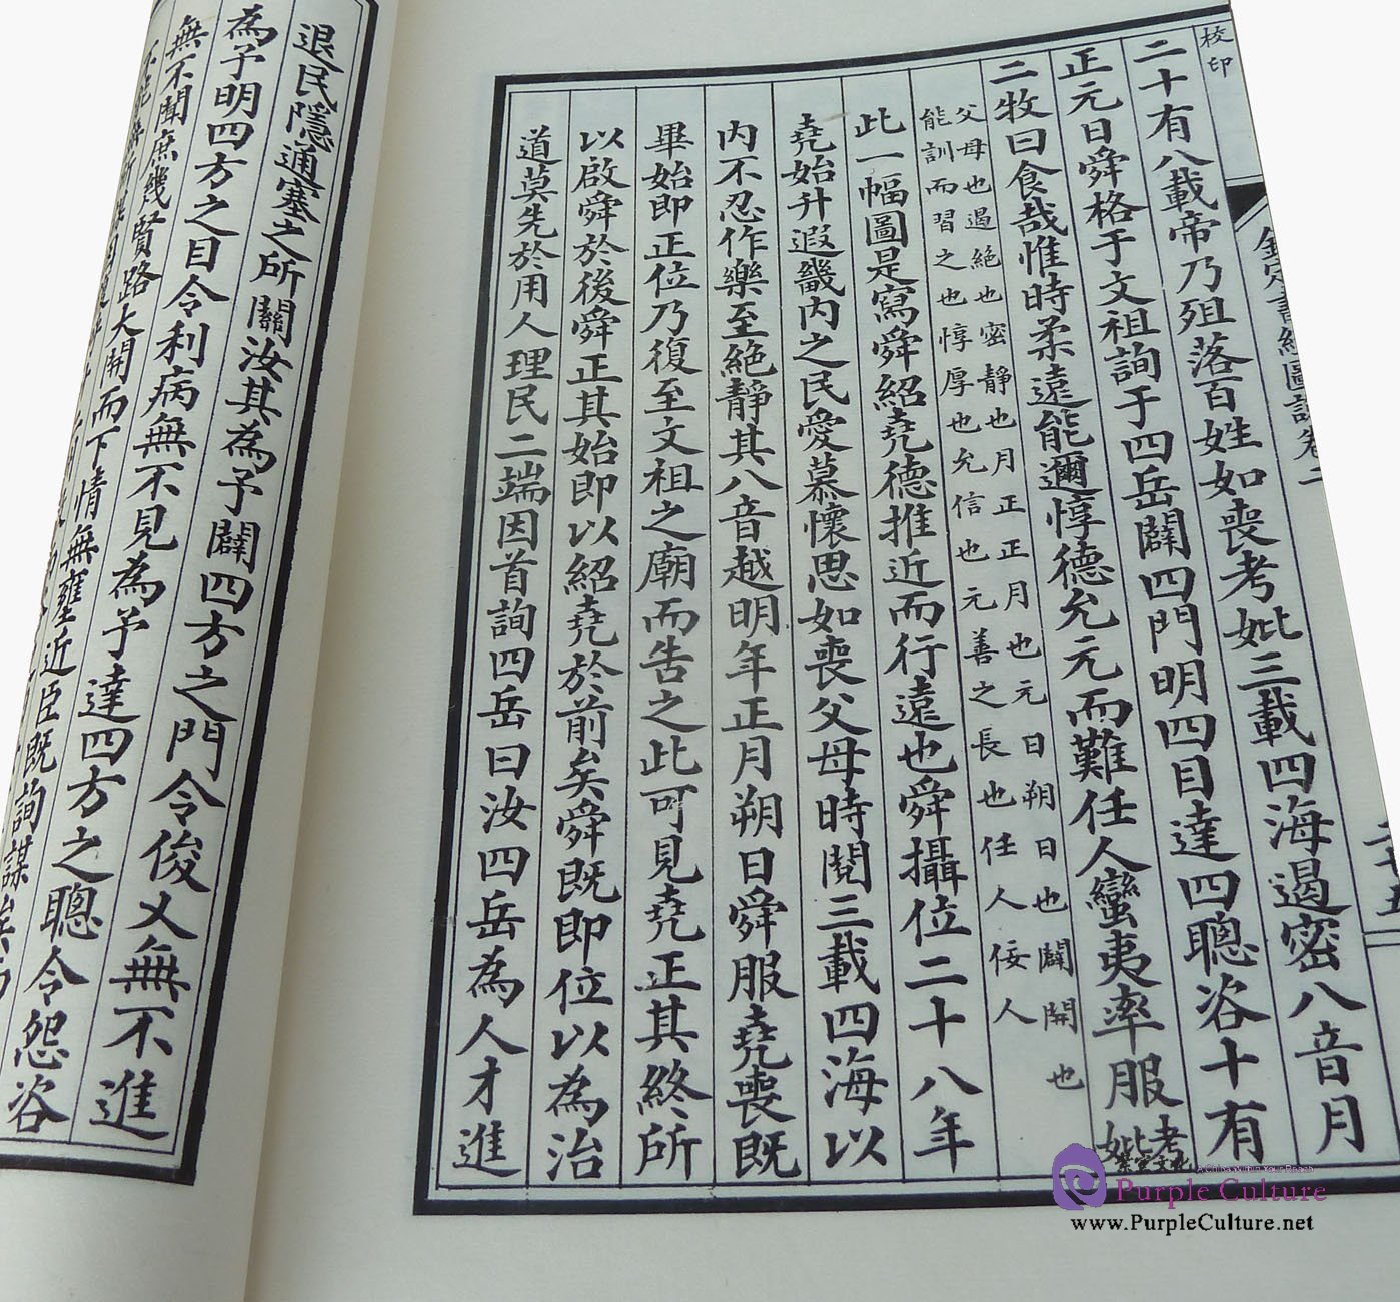 校印
欽定書經圖說卷二
二十有八載帝乃殂落百姓如喪考妣三載四海遏密八音月
正元日舜格于文祖詢于四岳闢四門明四目達四聰咨十有
二牧曰食哉惟時柔遠能邇惇德允元而難任人蠻夷率服考妣
父母也遏絕也密靜也月正正月也元日朔日也闢開也
能訓而習之也惇厚也允信也元善之長也任人佞人
此一幅圖是寫舜紹堯德推近而行遠也舜攝位二十八年
堯始升遐畿內之民愛慕懷思如喪父母時閱三載四海以
內不忍作樂至絕靜其八音越明年正月朔日舜服堯喪既
畢始即正位乃復至文祖之廟而告之此可見堯正其終所
以啟舜於後舜正其始即以紹堯於前矣舜既即位以為治
道莫先於用人理民二端因首詢四岳曰汝四岳為人才進
退民隱通塞之所關汝其為予闢四方之門令俊乂無不進
為予明四方之目令利病無不見為予達四方之聰令怨咨
無不聞庶幾賢路大開而下情無壅近臣既詢謀矣
紫宸文化
A China Within Your Reach
Purple Culture
www.PurpleCulture.net